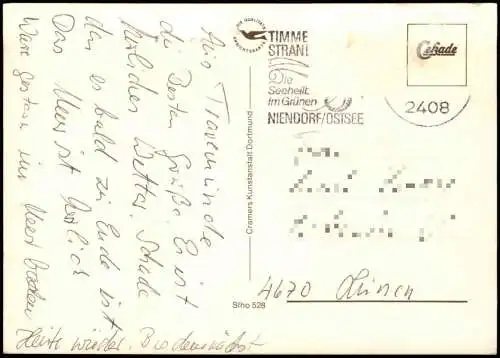 Aus Travemünde
die Besten Grüße. Es ist
herrliches Wetter. Schade
das es bald zu Ende ist
Das Meer ist herrlich
Ware gestern im Meer baden
Heute wieder.
DIE QUALITÄTS ANSICHTSKARTE
TIMMENDORFER
STRAND
Die
Seeheilb.
im Grünen
NIENDORF/OSTSEE
2408
Cekade
Cramers Kunstanstalt Dortmund
Sfho 528
4670 Lünen